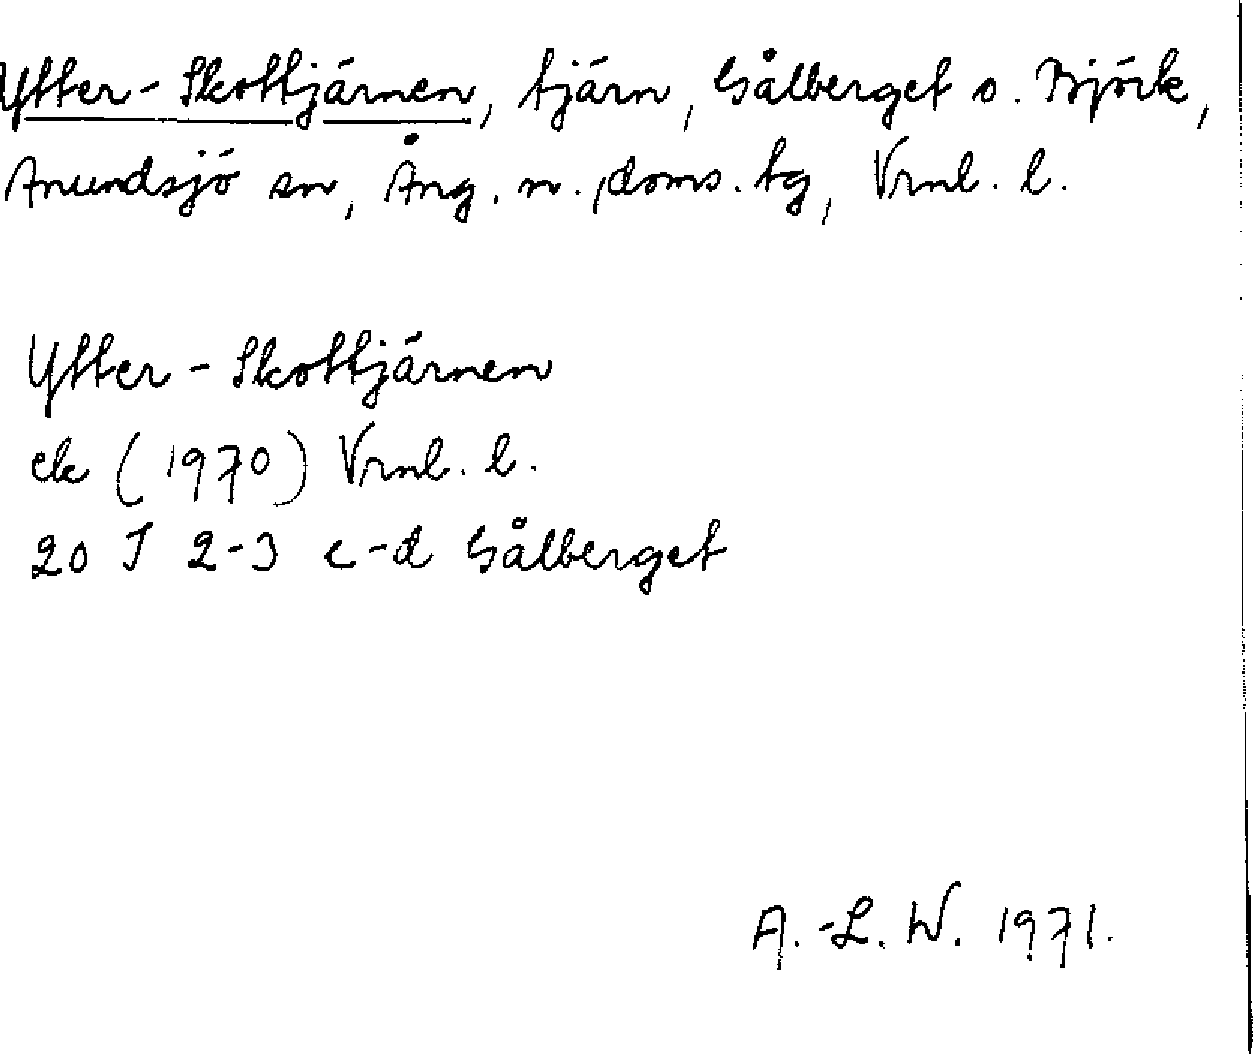 Ytter-Skottjärnen, tjärn, Gålberget o. Björk,
Anundsjö sn, Ång. n. doms. tg, Vrnl. l.
Ytter-Skottjärnen
ek (1970) Vrnl. l.
20 J 2-3 c-d Gålberget
A.-L. W. 1971.